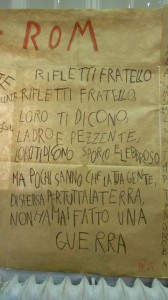 - ROM
RIFLETTI FRATELLO
RIFLETTI FRATELLO,
LORO TI DICONO,
LADRO E PEZZENTE,
LORO TI DICONO SPORCO E LEBBROSO
MA POCHI SANNO CHE LA TUA GENTE,
DISPERSA PER TUTTA LA TERRA,
NON HA MAI FATTO UNA
GUERRA